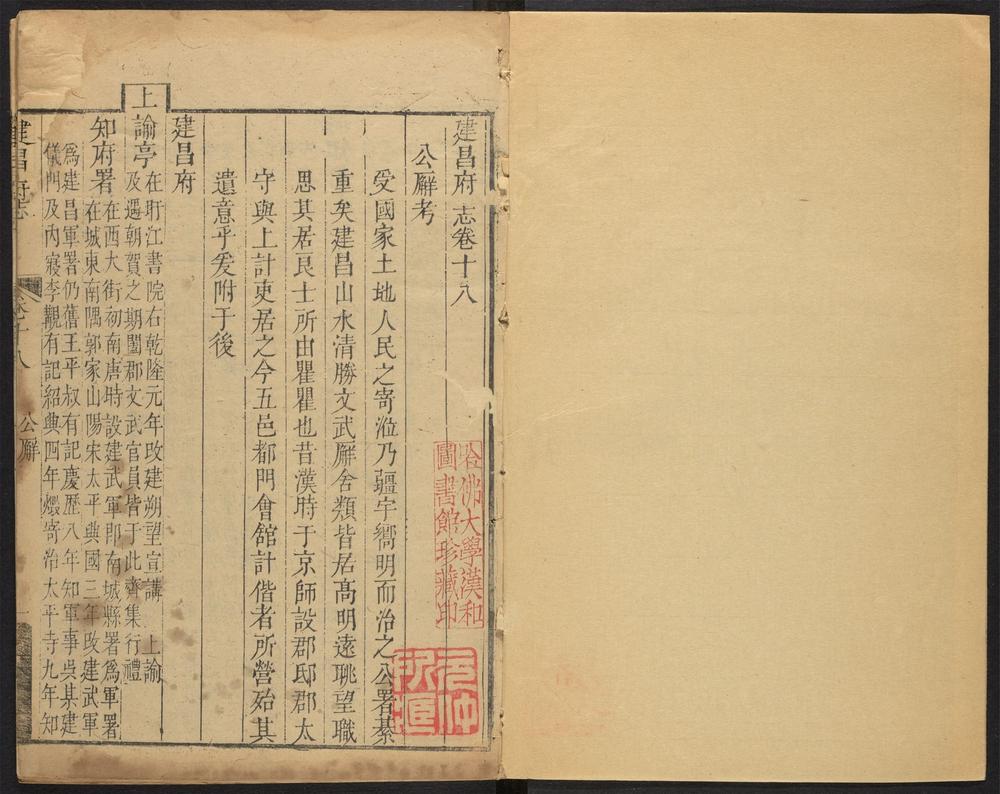 建昌府志卷十八
公廨考
受國家土地人民之寄涖乃疆宇嚮明而治之公署綦
重矣建昌山水清勝文武廨舍類皆居高明遠眺望職
思其居良士所由瞿瞿也昔漢時于京師設郡邸郡太
守與上計吏居之今五邑都門會館計偕者所營殆其
遺意乎爰附于後
建昌府
上諭亭
在盱江書院右乾隆元年改建朔望宣講 上諭
及遇朝賀之期闔郡文武官員皆于此齊集行禮
知府署
在西大街初南唐時設建武軍即南城縣署爲軍署
在城東南隅郭家山陽宋太平興國三年改建武軍
爲建昌軍署仍舊王平叔有記慶歷八年知軍事吳某建
儀門及內寢李覯有記紹興四年燬寄治太平寺九年知
建昌府志
卷十八
公廨
一
哈佛大學漢和
圖書館珍藏印